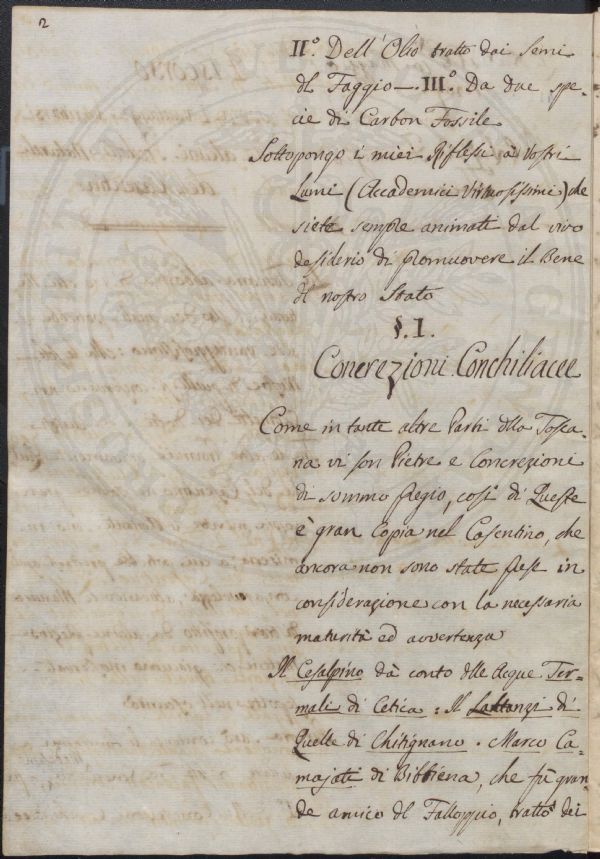 2
II.° Dell'Olio tratto dai Semi
dl Faggio — III.° Da due spe-
cie di Carbon Fossile
Sottopongo i miei Riflessi a' Vostri
Lumi (Accademici Virtuosissimi) che
siete sempre animati dal vivo
desiderio di promuovere il Bene
dl nostro Stato
§. I.
Concrezioni Conchiliacee
Come in tante altre Parti dlla Tosca-
na vi son Pietre e Concrezioni
di sommo pregio, così di Queste
è gran Copia nel Casentino, che
ancora non sono state prese in
considerazione con la necessaria
maturità ed avvertenza
Il Cesalpino dà conto dlle Acque Ter-
mali di Cetica : Il di
Quelle di Chitignano . Marco Ca-
majati di Bibbiena, che fù gran-
de amico dl Falloppio, trattò dei